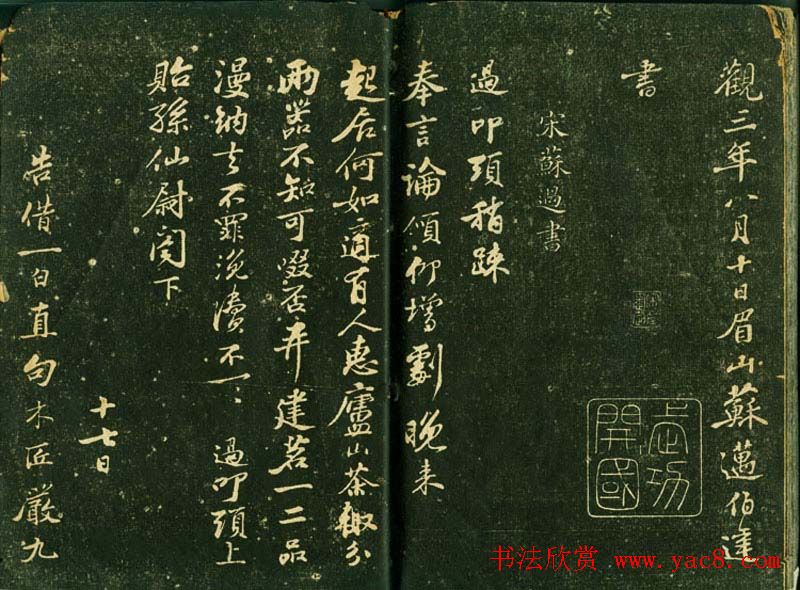 觀三年八月十日眉山蘇邁伯達
書
武功
開國
宋蘇過書
過叩頭稍踈
奉言論傾仰增劇晚来
起居何如適有人惠廬山茶輙分
兩器不知可啜否并建茗一二品
漫納去不罪浼瀆不一〻過叩頭上
貽孫仙尉閤下
十七日
告借一白直句木匠嚴九
书法欣赏 www.yac8.com